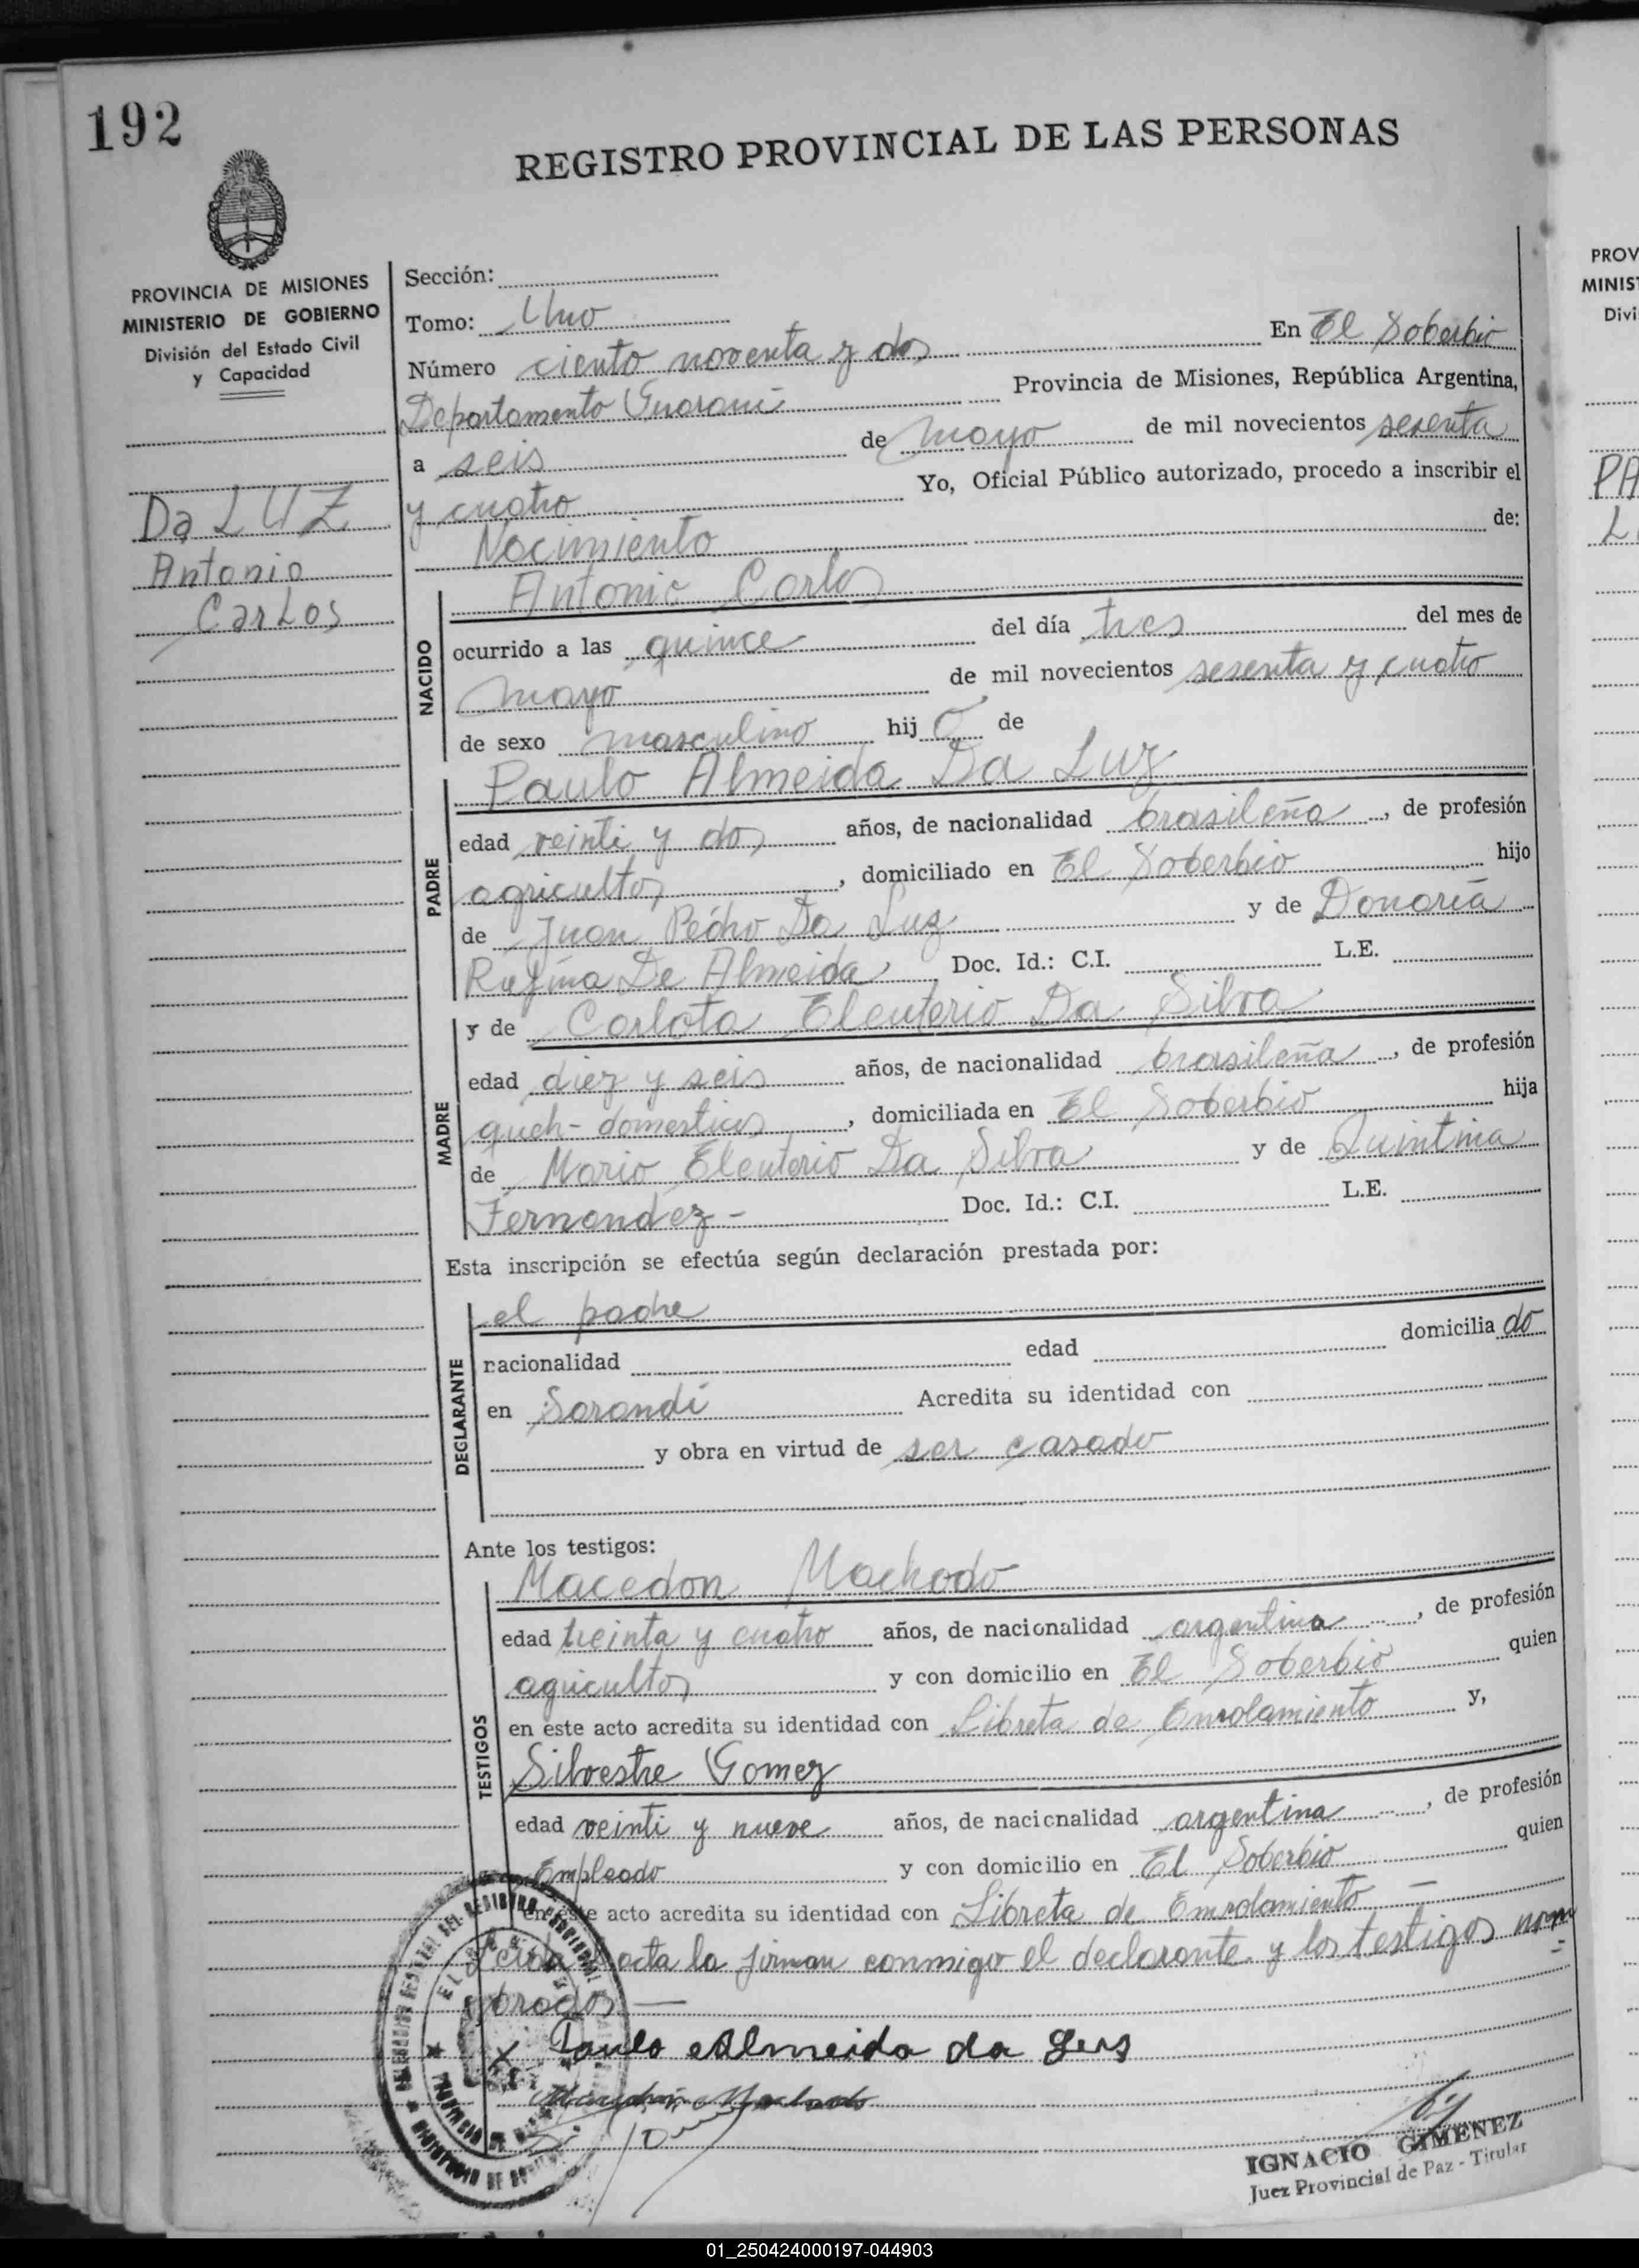 192
REGISTRO PROVINCIAL DE LAS PERSONAS
PROVINCIA DE MISIONES
MINISTERIO DE GOBIERNO
División del Estado Civil
y Capacidad
Da LUZ
Antonio
Carlos
Sección:
Tomo: Uno
Número ciento noventa y dos En El Soberbio
Departamento Guarani Provincia de Misiones, República Argentina,
a seis de mayo de mil novecientos sesenta
y cuatro Yo, Oficial Público autorizado, procedo a inscribir el
Nacimiento de:
NACIDO
Antonio Carlos
ocurrido a las quince del día tres del mes de
mayo de mil novecientos sesenta y cuatro
de sexo masculino hij o de
PADRE
Paulo Almeida Da Luz
edad veinti y dos años, de nacionalidad brasileña, de profesión
agricultor, domiciliado en El Soberbio hijo
de Juan Pedro Da Luz y de Donoria
Rufina De Almeida Doc. Id.: C.I. L.E.
MADRE
y de Carlota Eleuterio Da Silva
edad diez y seis años, de nacionalidad brasileña, de profesión
queh- domesticos, domiciliada en El Soberbio hija
de Mario Eleuterio Da Silva y de Quintina
Fernandez - Doc. Id.: C.I. L.E.
Esta inscripción se efectúa según declaración prestada por:
DECLARANTE
el padre
nacionalidad edad domicilia do
en Sarandi Acredita su identidad con
y obra en virtud de ser casado
Ante los testigos:
TESTIGOS
Macedon Machado
edad treinta y cuatro años, de nacionalidad argentina, de profesión
agricultor y con domicilio en El Soberbio quien
en este acto acredita su identidad con Libreta de Enrolamiento y,
Silvestre Gomez
edad veinti y nueve años, de nacionalidad argentina, de profesión
Empleado y con domicilio en El Soberbio quien
en este acto acredita su identidad con Libreta de Enrolamiento —
Leida acta la firman conmigo el declarante y los testigos nom=
brados —
x Paulo Almeida da Luz
Machado
IGNACIO GIMENEZ
Juez Provincial de Paz - Titular
PROV
MINIST
Divi
PA
L
01_250424000197-044903